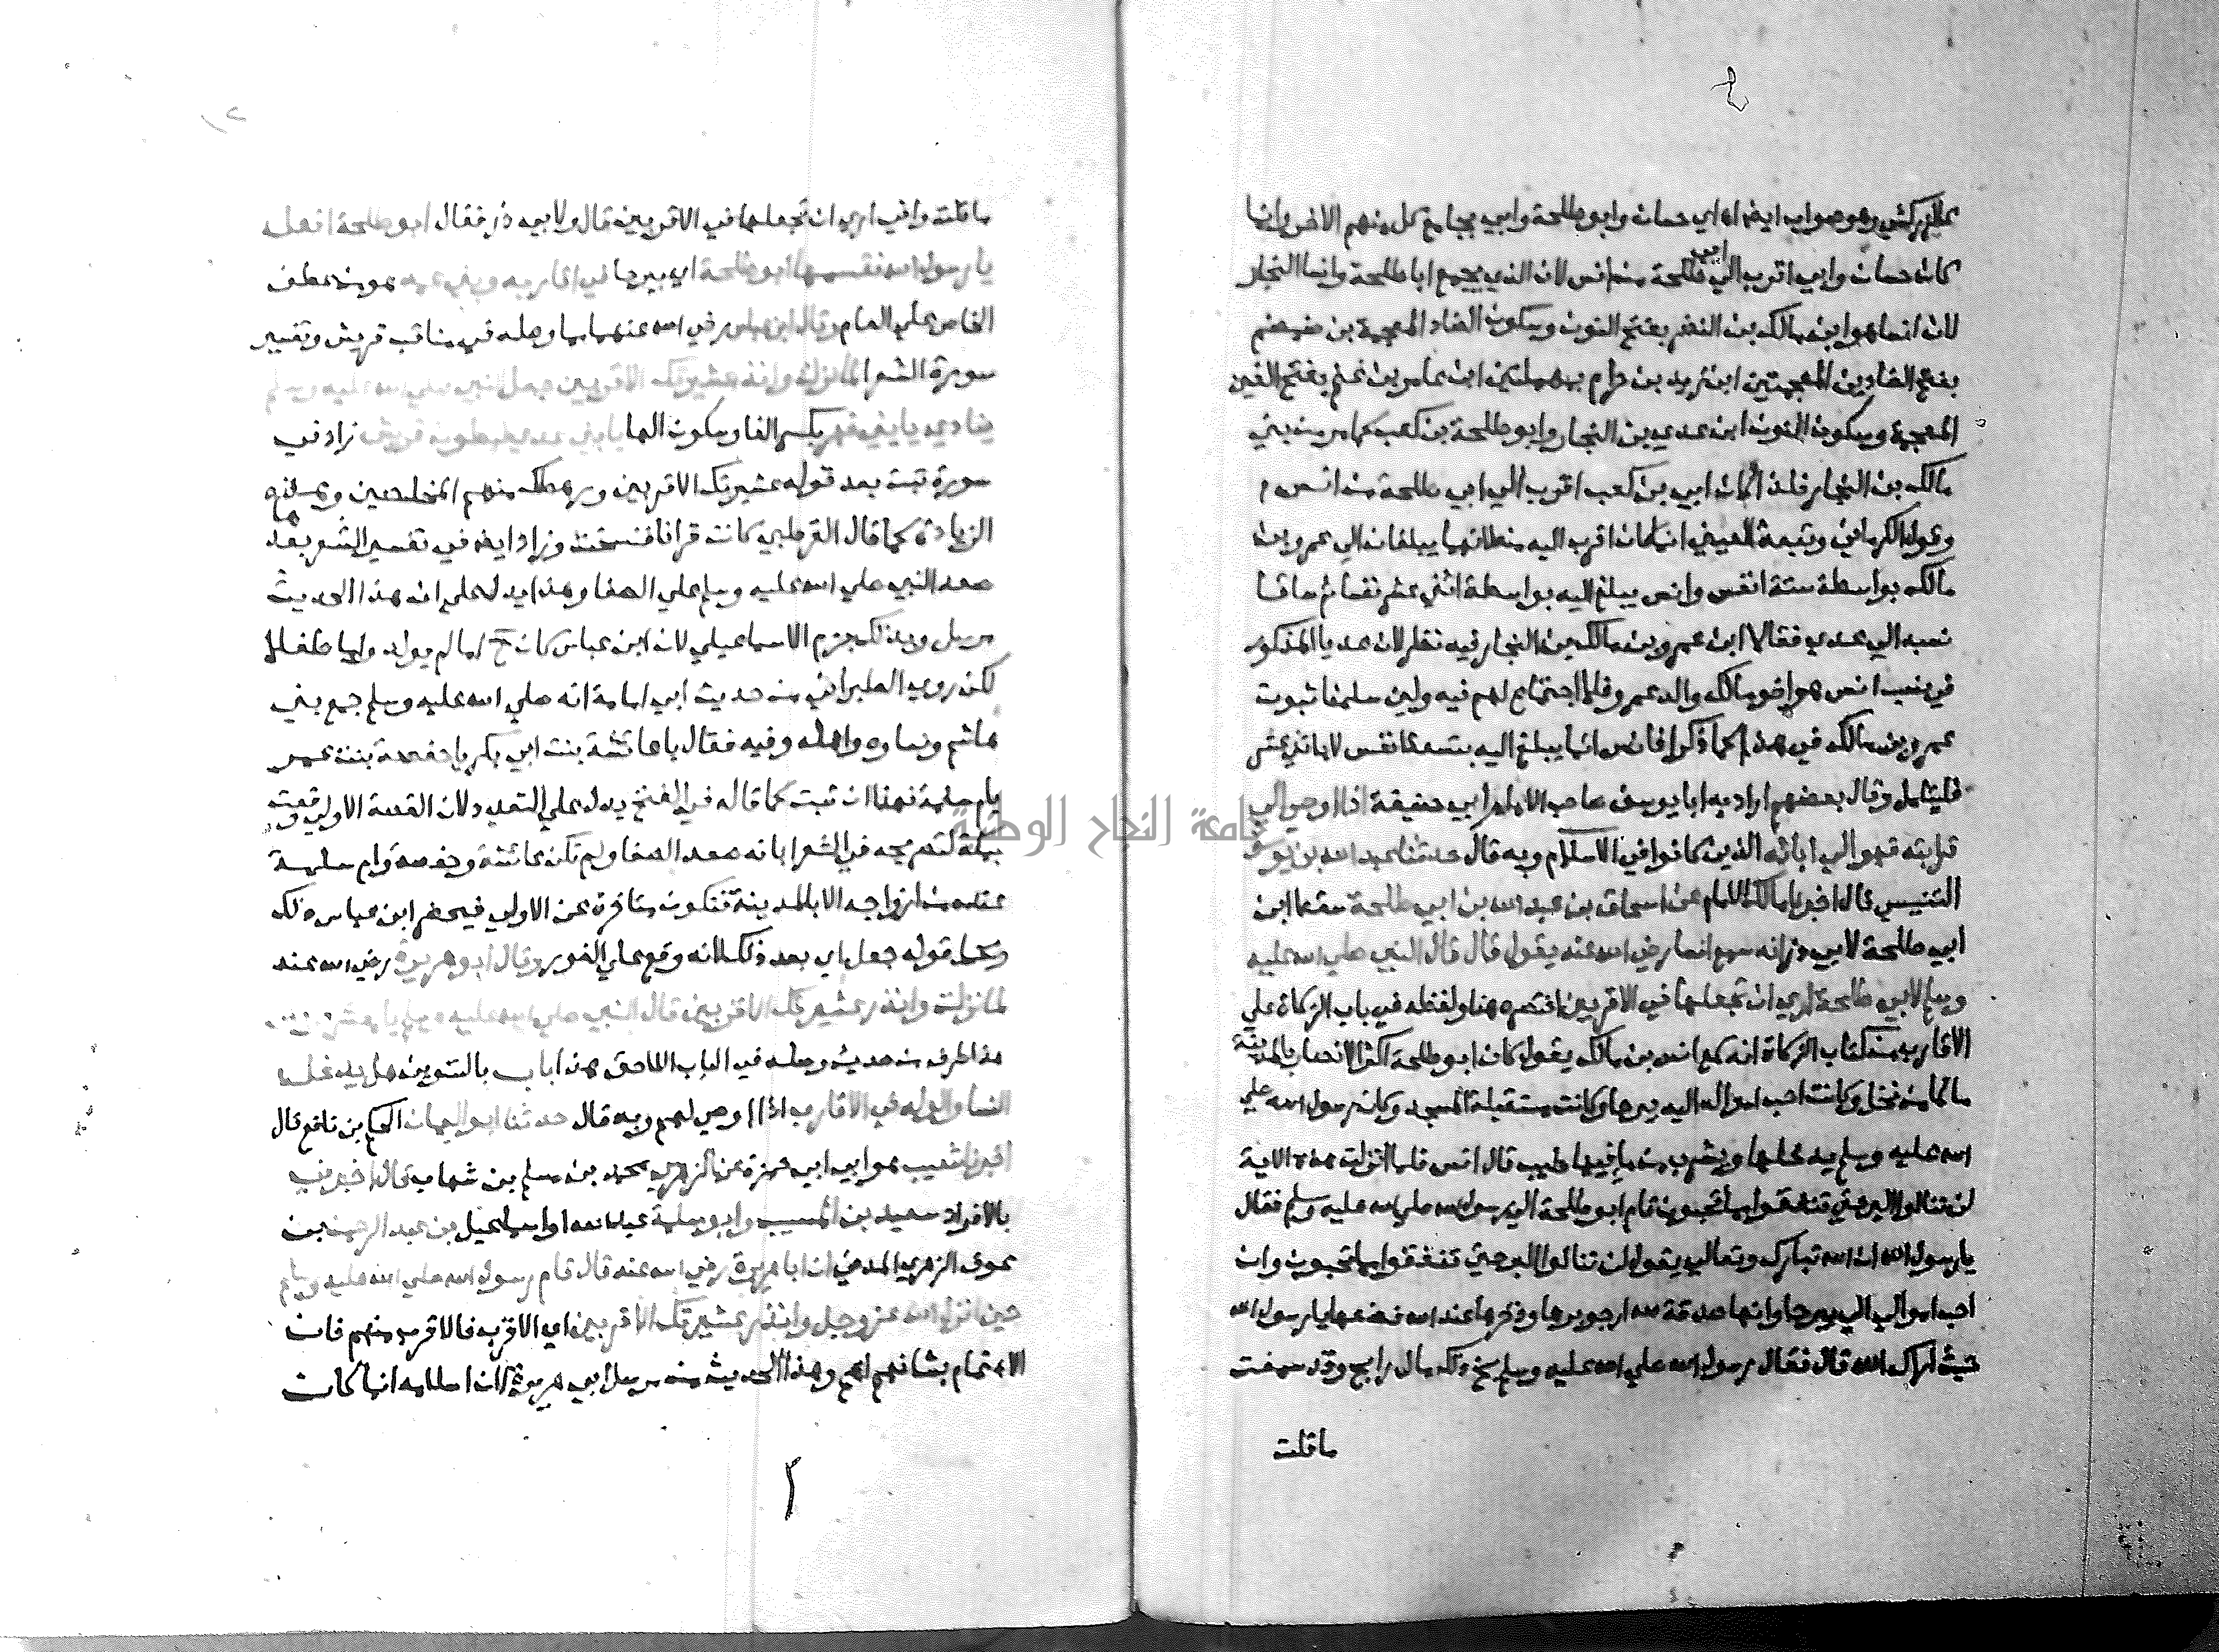 كالزركشي وهو صواب ايضا اي حسان وابو طلحة وابي يجامع كل منهم الاخر وانما
كان حسان وابي اقرب الي ابي طلحة من انس لان الذي يجمع ابا طلحة وانسا النجار
لان انسا هو ابن مالك بن النضر بفتح النون وسكون الضاد المعجمة بن ضمضم
بفتح الضادين المعجمتين ابن زيد بن حرام بمهملتين ابن عامر بن غنم بفتح الغين
المعجمة وسكون النون ابن عدي بن النجار وابو طلحة بن كعب كما مر من بني
مالك بن النجار فلذا كان ابي بن كعب اقرب الي ابي طلحة من انس
وقول الكرماني وتبعه العيني انما كان اقرب اليه منه لانهما يبلغان الي عمرو بن
مالك بواسطة ستة انفس وانس يبلغ اليه بواسطة اثني عشر نفسا ثم ساقا
نسبه الي عدي فقالا ابن عمرو بن مالك بن النجار فيه نظر لان عديا المذكور
في نسب انس هو اخو مالك والد عمرو فلا اجتماع لهم فيه ولين سلمنا ثبوت
عمرو بن مالك في هذا كما ذكرا فانس انما يبلغ اليه بتسعة انفس لا باثني عشر
فليتامل وقال بعضهم اراد به ابا يوسف صاحب الامام ابي حنيفة اذا اوصي الي
قرابته فهو الي ابائه الذين كانوا في الاسلام وبه قال حدثنا عبد الله بن يوسف
التنيسي قال اخبرنا مالك الامام عن اسحاق بن عبد الله بن ابي طلحة سقط ابن
ابي طلحة لابي ذر انه سمع انسا رضي الله عنه يقول قال قال النبي صلي الله عليه
وسلم لابي طلحة اري ان تجعلها في الاقربين اختصره هنا ولفظه في باب الزكاة علي
الاقارب من كتاب الزكاة انه سمع انس بن مالك يقول كان ابو طلحة اكثر الانصار بالمدينة
مالا من نخل وكانت احب امواله اليه بيرحا وكانت مستقبلة المسجد وكان رسول الله صلي
الله عليه وسلم يدخلها ويشرب من ما فيها طيب قال انس فلما انزلت هذه الاية
لن تنالوا البر حتي تنفقوا مما تحبون قام ابو طلحة الي رسول الله صلي الله عليه وسلم فقال
يا رسول الله ان الله تبارك وتعالي يقول لن تنالوا البر حتي تنفقوا مما تحبون وان
احب اموالي الي بيرحا وانها صدقة لله ارجو برها وذخرها عند الله فضعها يا رسول الله
حيث اراك الله قال فقال رسول الله صلي الله عليه وسلم بخ ذلك مال رابح وقد سمعت
ما قلت
ما قلت واني اري ان تجعلها في الاقربين قال ولابيه ذر فقال ابو طلحة افعل
يا رسول الله فقسمها ابو طلحة اي بيرحا في اقاربه وبني عمه هو من عطف
الخاص علي العام وقال ابن عباس رضي الله عنهما مما وصله في مناقب قريش وتفسير
سورة الشعرا لما نزلت وانذر عشيرتك الاقربين جعل النبي صلي الله عليه وسلم
ينادي يا بني فهر بكسر الفا وسكون الها يا بني عدي لبطون قريش زاد في
سورة تبت بعد قوله عشيرتك الاقربين ورهطك منهم المخلصين وهذه
الزيادة كما قال القرطبي كانت قرانا فنسخت وزاد ايضا في تفسير الشعرا بعد
صعد النبي صلي الله عليه وسلم علي الصفا وهذا يدل علي ان هذا الحديث
مرسل وبذلك جزم الاسماعيلي لان ابن عباس كان ح اما لم يولد واما طفلا
لكن روي الطبراني من حديث ابي امامة انه صلي الله عليه وسلم جمع بني
هاشم ونساه واهله وفيه فقال يا عائشة بنت ابي بكر يا حفصة بنت عمر
يا ام سلمة فهذا ان ثبت كما قاله في الفتح يدل علي التعدد لان القصة الاولي وقعت
بمكة لتصريحه في الشعرا بانه صعد الصفا ولم تكن عائشة وحفصة وام سلمة
عنده من ازواجه الا بالمدينة فتكون متاخرة عن الاولي فيحضر ابن عباس ذلك
ويحمل قوله جعل اي بعد ذلك لا انه وقع علي الفور وقال ابو هريرة رضي الله عنه
لما نزلت وانذر عشيرتك الاقربين قال النبي صلي الله عليه وسلم يا معشر قريش
هذا طرف من حديث وصله في الباب اللاحق هذا باب بالتنوين هل يدخل
النسا والولد في الاقارب اذا اوصي لهم وبه قال حدثنا ابو اليمان الحكم بن نافع قال
اخبرنا شعيب هو ابن ابي حمزة عن الزهري محمد بن مسلم بن شهاب قال اخبرني
بالافراد سعيد بن المسيب وابو سلمة عبد الله او اسماعيل بن عبد الرحمن بن
عوف الزهري المدني ان ابا هريرة رضي الله عنه قال قام رسول الله صلي الله عليه وسلم
حين انزل الله عز وجل وانذر عشيرتك الاقربين اي الاقرب فالاقرب منهم فان
الاهتمام بشانهم اهم وهذا الحديث من مرسل ابي هريرة لان اسلامه انما كان
جامعة النجاح الوطنية